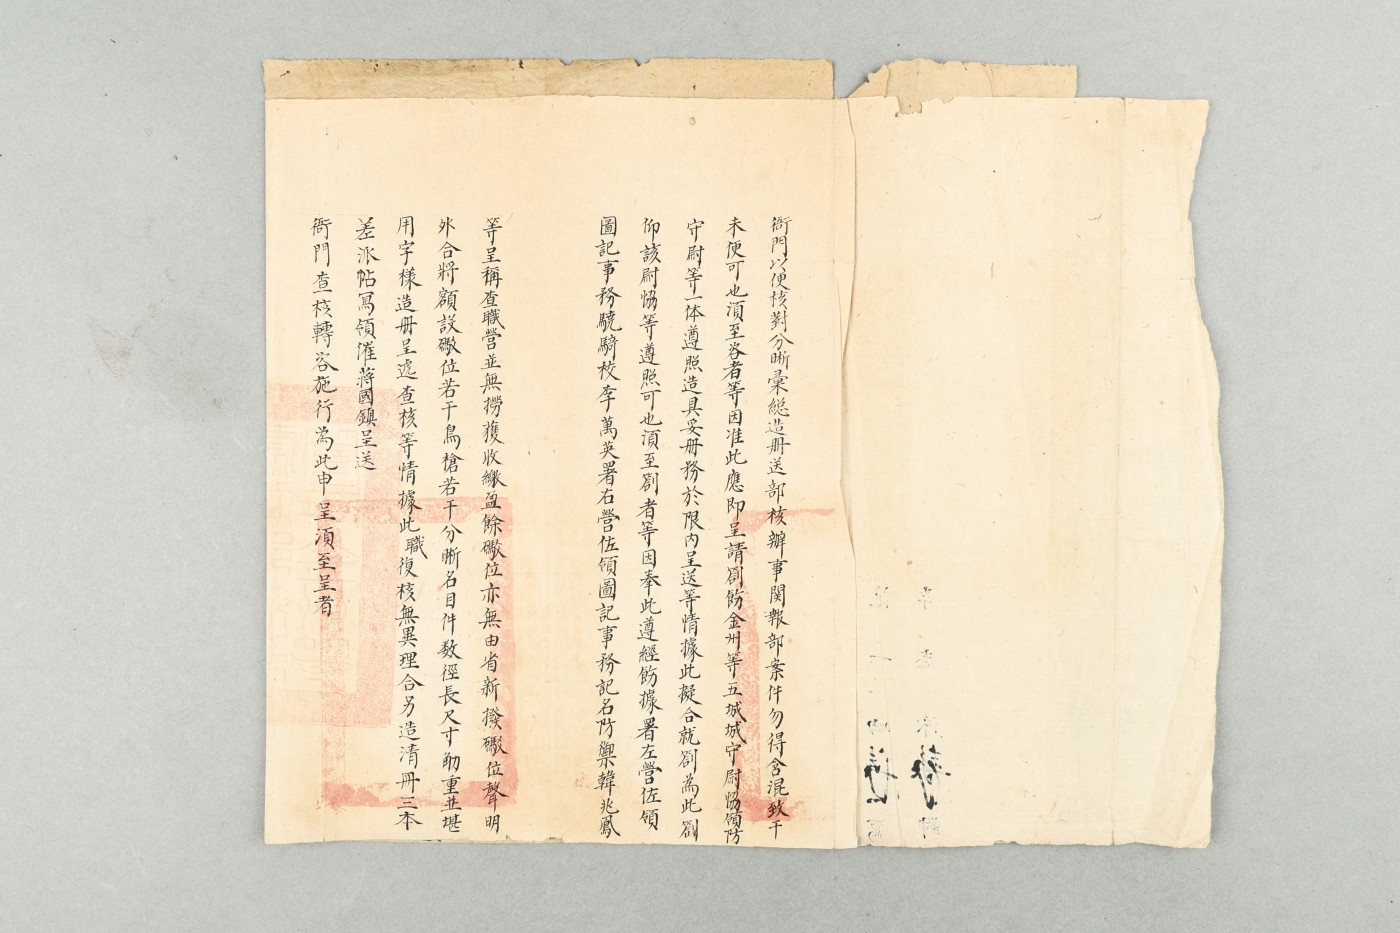 衙門以便核對分晰彙總造冊送部核辦事関報部案件勿得含混致干
未便可也須至咨者等因准此應即呈請劄飭金州等五城城守尉協領防
守尉等一体遵照造具妥冊務於限内呈送等情據此擬合就劄為此劄
仰該尉協等遵照可也須至劄者等因奉此遵經飭據署左營佐領
圖記事務驍騎校李萬英署右營佐領圖記事務記名防禦韓兆鳳
等呈稱查職營並無撈獲收繳盈餘礟位亦無由省新撥礟位聲明
外合將額設礟位若干鳥槍若干分晰名目件数徑長尺寸觔重並堪
用字樣造冊呈遞查核等情據此職復核無異理合另造清冊三本
差派帖寫領催蔣國鎮呈送
衙門查核轉咨施行為此申呈須至呈者